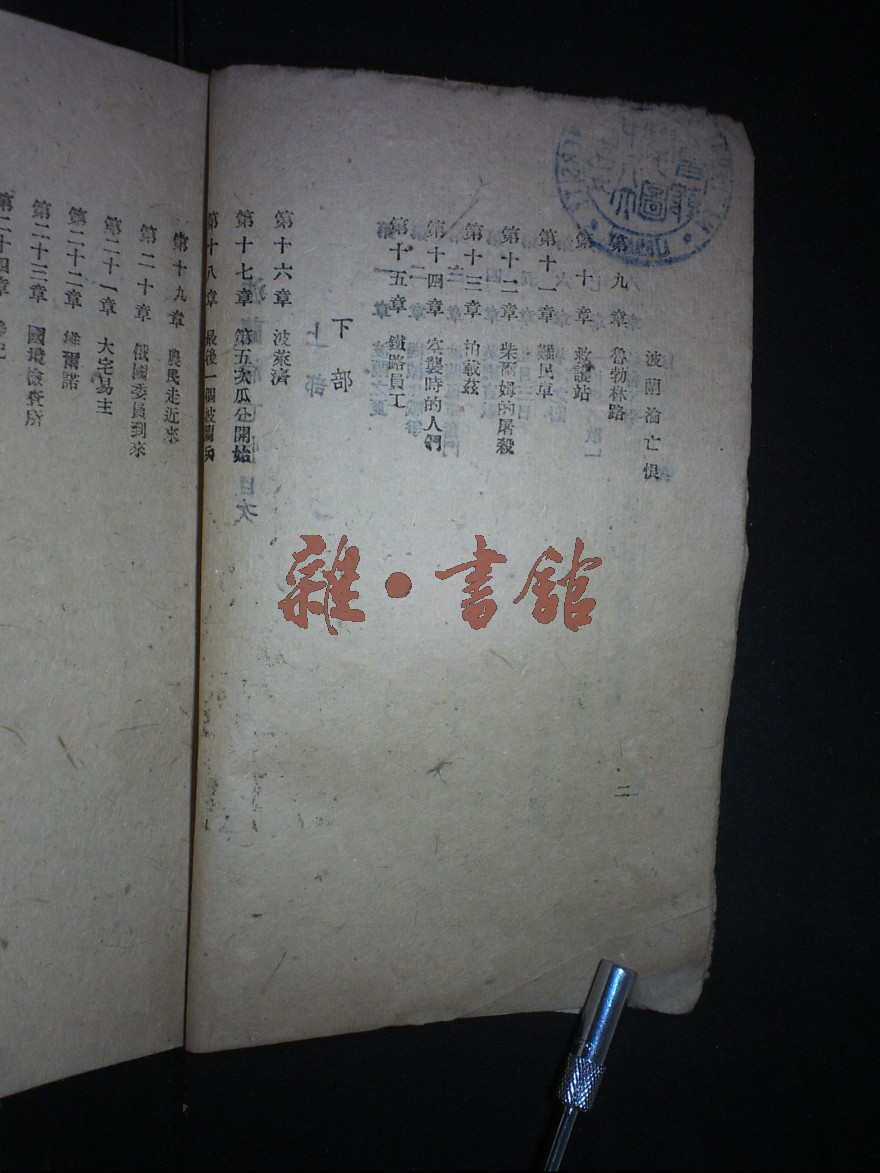 波蘭淪亡恨
第九章 魯勃林路
第十章 救護站
第十一章 難民車
第十二章 柴爾姆的屠殺
第十三章 柏載茲
第十四章 空襲時的人們
第十五章 鐵路員工
下部
第十六章 波萊濟
第十七章 第五次瓜分開始
第十八章 最後一個波蘭兵
第十九章 農民走近來
第二十章 俄國委員到來
第二十一章 大宅易主
第二十二章 維爾諾
第二十三章 國境檢查所
第二十四章
二
雜·書館